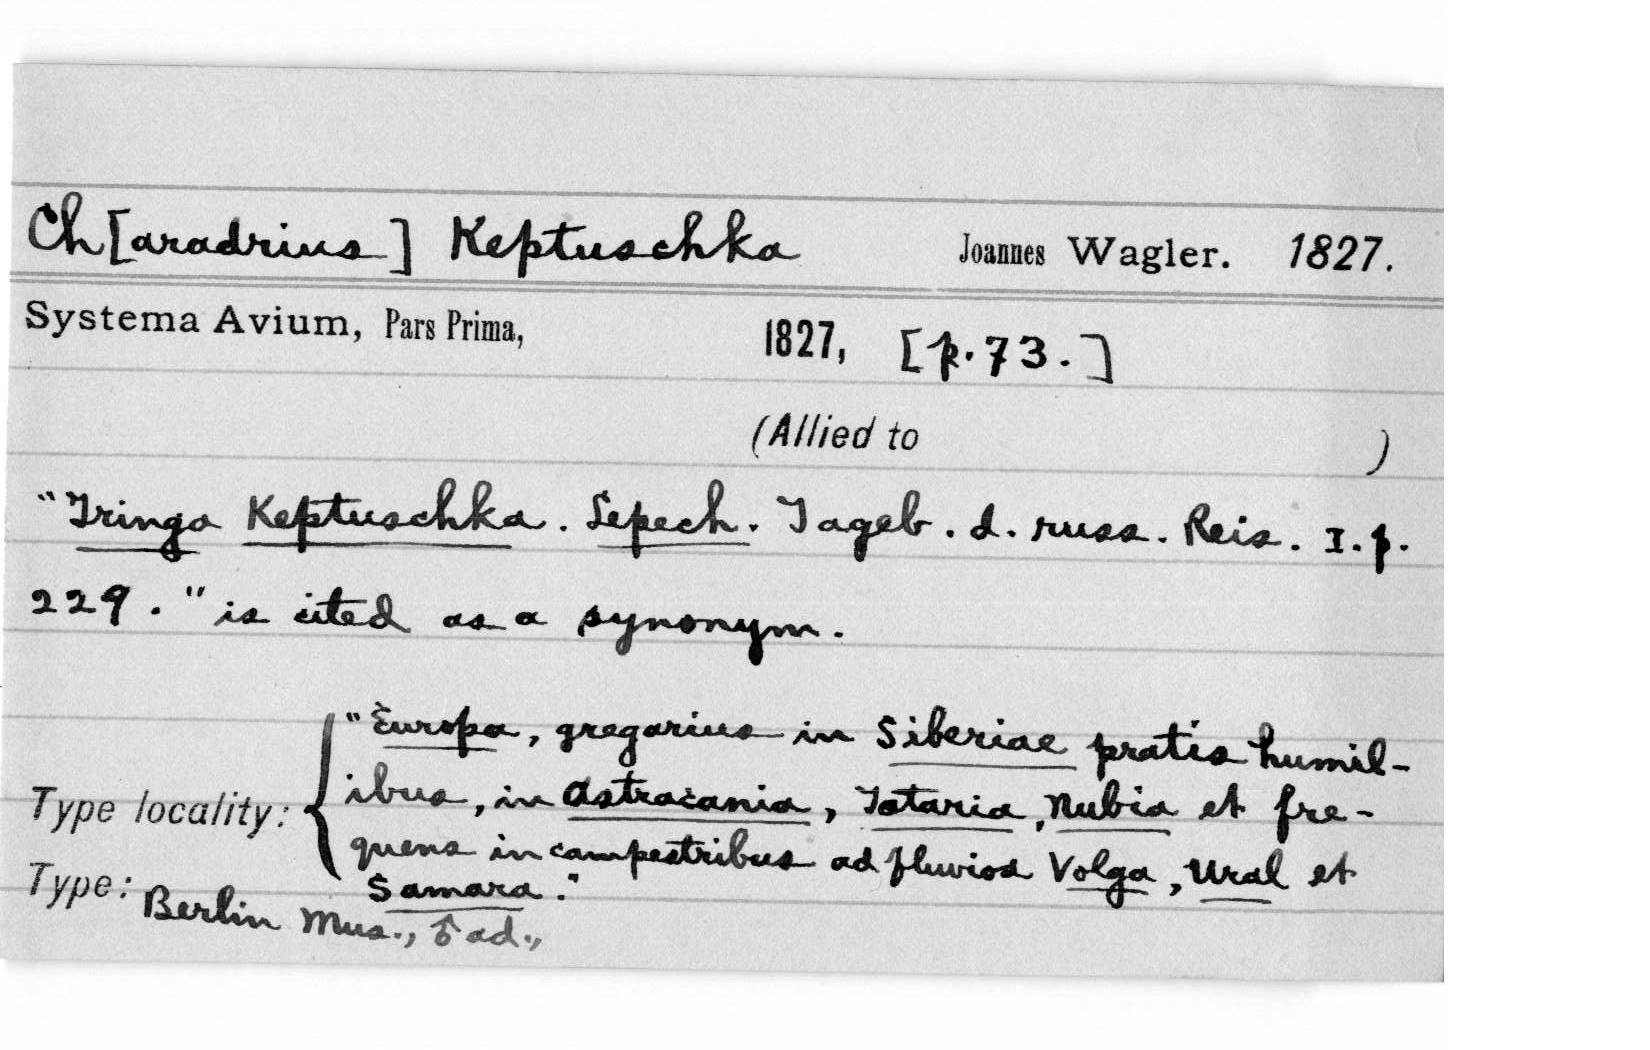 Ch[aradrius] Keptuschka Joannes Wagler. 1827.
Systema Avium, Pars Prima, 1827, [p.73.]
(Allied to )
"Tringa Keptuschka. Lepech. Tageb. d. russ. Reis. I. p.
229." is cited as a synonym.
"Europa, gregarius in Siberiae pratis humil-
Type locality: { ibus, in Astracania, Tataria, Nubia et fre-
quens in campestribus ad fluvios Volga, Ural et
Samara."
Type: Berlin Mus., ♂ ad.,